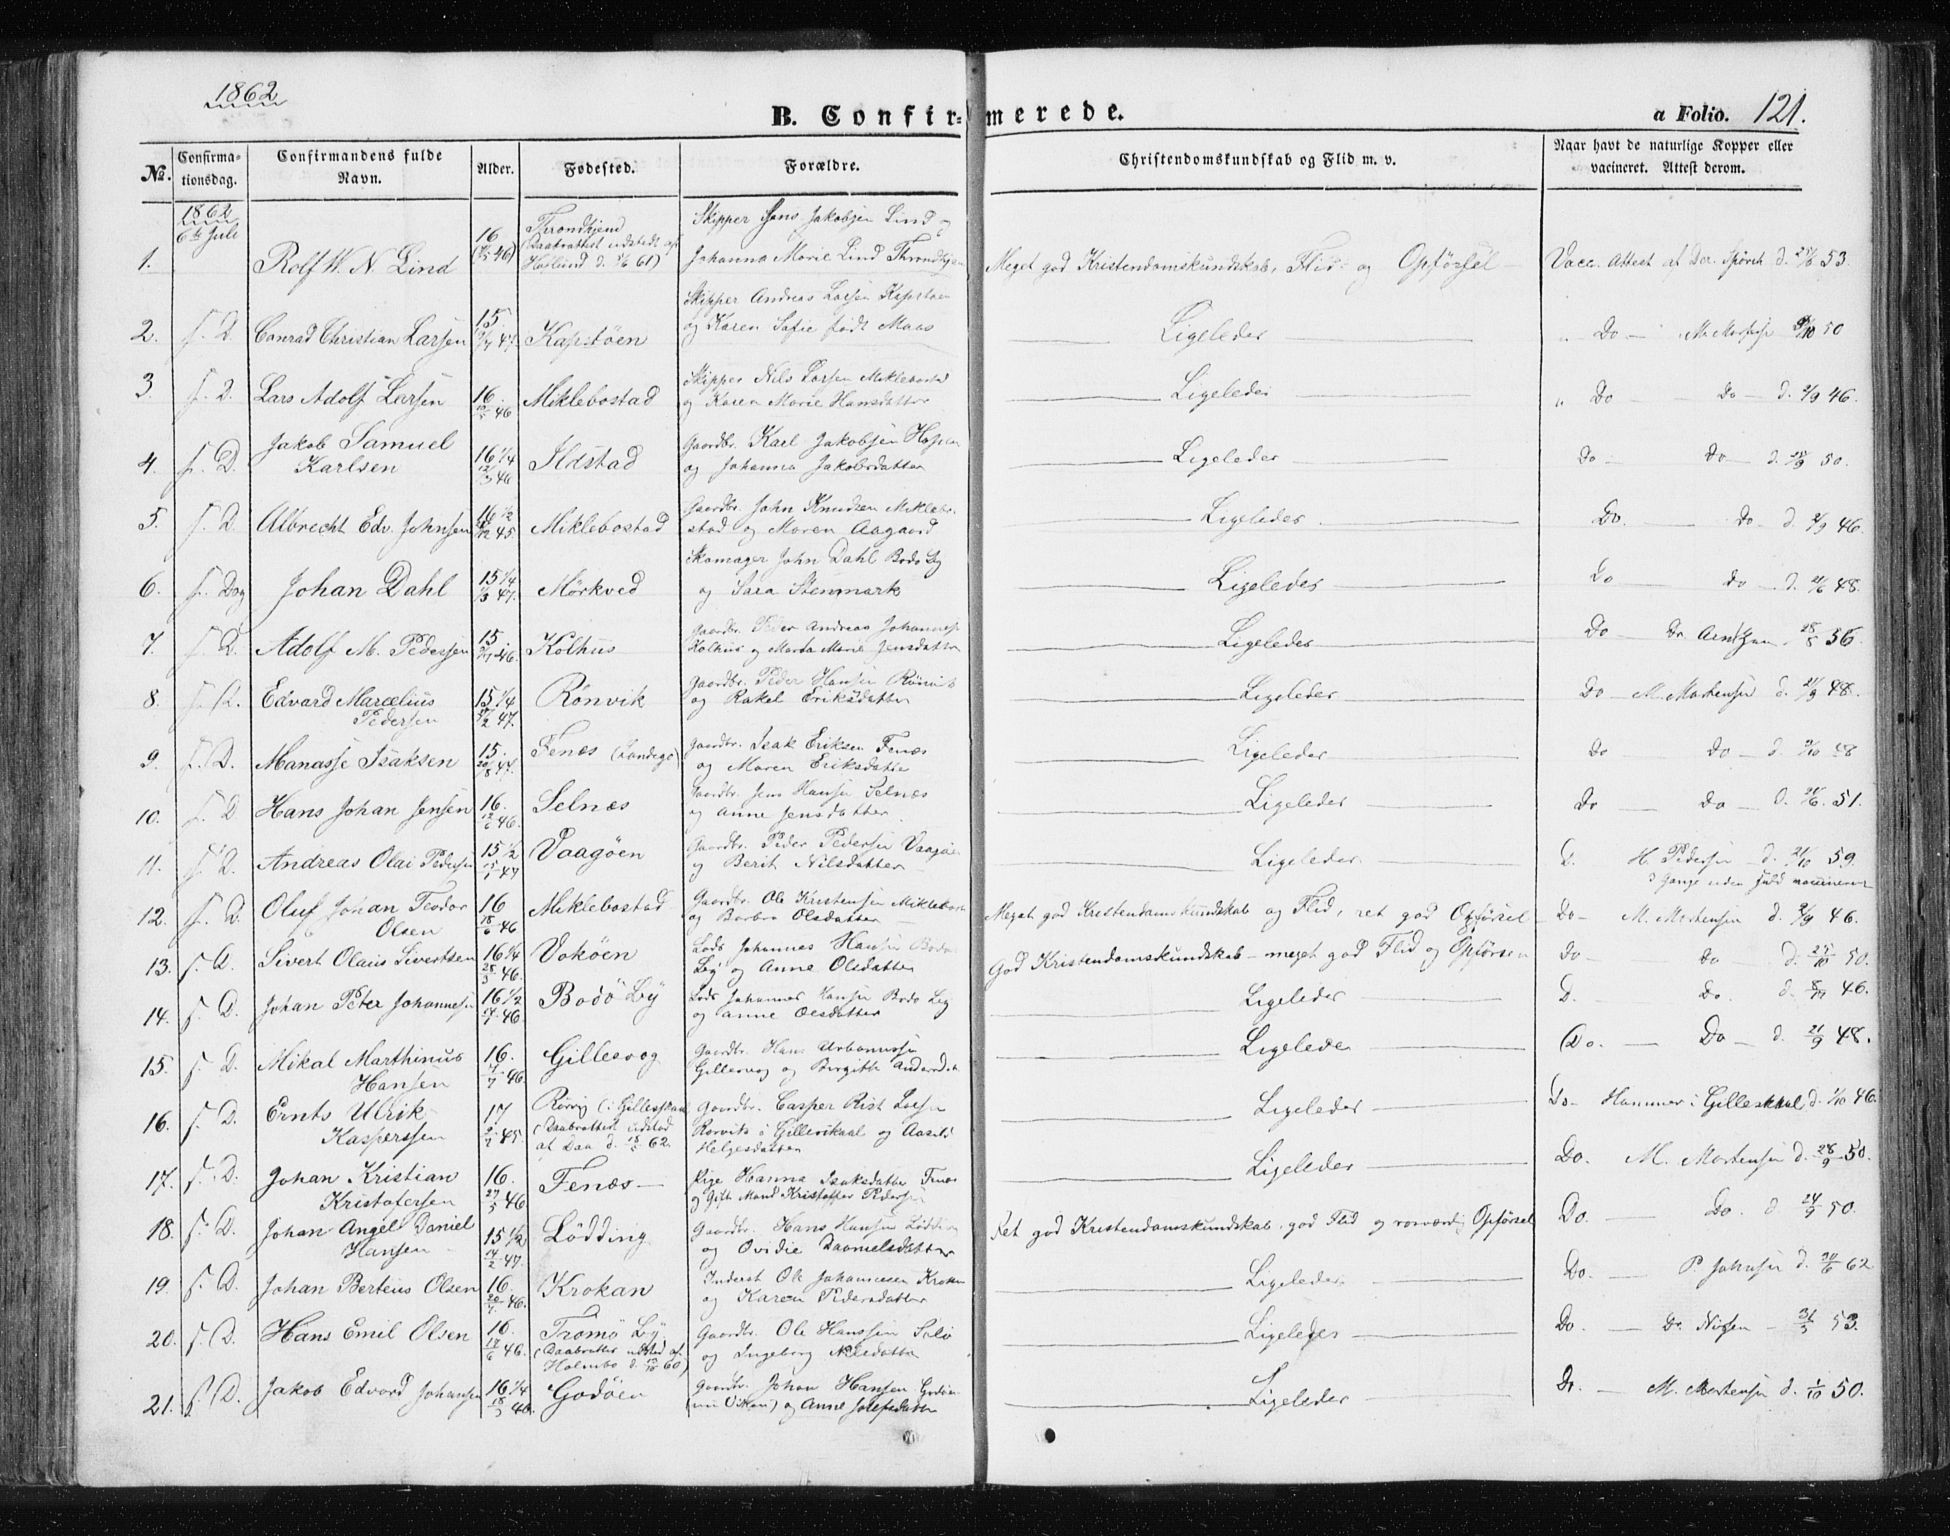 1862
B. Confirmerede.
a Folio. 121.
No.
Confirmationsdag.
Confirmandens fulde Navn.
Alder.
Fødested.
Forældre.
Christendomskundskab og Flid m. v.
Naar havt de naturlige Kopper eller vacineret. Attest derom.
1862
6te Juli
1. Rolf W. N. Lind 16 Throndhjem Skipper Hans Jakobsen Lind og
Johanna Marie Lind Throndhjem Meget god Kristendomskundskab, Flid og Opførsel Vacc. Attest af 53.
2. s. D. Conrad Christian Larsen 15 47. Kapstøen Skipper Andreas Larsen Kapstøen
og Karen Sofie født Maas Ligeledes Do 50
3. s. D. Lars Adolf Larsen 16. 46 Miklebostad Skipper Nils Larsen Miklebostad
og Karen Marie Hansdatter Ligeledes Do Do d. 2/9 46.
4. s. D. Jakob Samuel Karlsen 16 1/4 46 Ildstad Gaardbr. Karl Jakobsen
og Johanna Jakobsdatter Ligeledes Do Do d. 50.
5. s. D. Albrecht Edv. Johnsen 16 1/2 45. Miklebostad Gaardbr. John Knudsen Miklebo-
stad og Maren Aagaard Ligeledes Do. Do d. 46.
6. s. Dag Johan Dahl 15 1/4 47. Mørkved Skomager John Dahl Bodø By
og Sara Stenmark Ligeledes Do do d. 48.
7. s. D. Adolf M. Pedersen 15. 46. Kolhus Gaardbr. Peder Andreas
Kolhus og Marta Marie Jensdatter Ligeledes Do Dr. 28/5 56.
8. s. D. Edvard Marcelius Pedersen 15 1/4 47. Rønvik Gaardbr. Peder Hansen Rønvik
og Rakel Eriksdatter Ligeledes Do M. Mortensen d. 21/9 48.
9. s. D. Manasse Isaksen 15. Fenæs (Landego) Gaardbr. Isak Eriksen Fenæs
og Maren Ligeledes Do Do d. 48
10. s. D Hans Johan Jensen 16. 12/6 46. Selnæs Gaardbr. Jens Hansen Selnæs
og Anne Jensdatter. Ligeledes Do do d. 51.
11. s. D. Andreas Olai Pedersen 15 1/2 47 Vaagøen Gaardbr. Peder Pedersen Vaagøen
og Berit Nilsdatter Ligeledes D. H. Pedersen d. 21/10 59.
3 Gange uden
12. s. D Oluf Johan Teodor Olsen 16 18/6 46 Miklebostad Gaardbr. Ole Kristensen Miklebost.
og Barbro Olsdatter Meget god Kristendomskundskab og Flid, ret god Opførsel Do M. Mortensen d. 46.
13. s. D. Sivert Olaus Sivertsen 16 1/4 28/3 46. Vokøen Lods Johannes Hansen Bodø
By og Anne Olsdatter God Kristendomskundskab meget god Flid og Opførsel Do Do d. 50.
14. s. D. Johan Peter Johannesen 16 1/2 46. Bodø By Lods Johannes Hansen Bodø By
og Anne Olsdatter Ligeledes D. Do. d. 46.
15. s. D. Mikal Marthinus Hansen 16. 46. Gillesvog Gaardbr. Hans
Gillesvog og Birgitte Ligeledes Do. Do d. 21/9 48.
16. s. D. Ernts Ulrik Kasperssen 17 45. Rørvig (i Gilleskaal Gaardbr. Casper Rist
Rørvik i Gilleskaal og
Helgesdatter Ligeledes Do Hammer i Gilleskaal d. 46.
17. s. D. Johan Kristian Kristofersen 16. 27/5 46 Fenæs Pige Hanna Isaksdatter Fenæs
og Gift Mand Kristoffer Pedersen Ligeledes Do. M. Mortensen d. 28/9 50.
18. s. D. Johan Angel Daniel Hansen 15 1/2 14/2 47. Lødding Gaardbr. Hans Hansen Lødding
og Ovidie Danielsdatter Ret god Kristendomskundskab, god Flid og rosværdig Opførsel Do. Do. d 24/9 50.
19. s. D. Johan Berteus Olsen 16. 46. Krokan Inderst Ole Johannesen Krokan
og Karen Pedersdatter Ligeledes Do. P Johnsen d. 62
20. s. D. Hans Emil Olsen 16. 17/6 46. Tromø By Gaardbr. Ole Hanssen
og Ingeborg Ligeledes Do. Dr. 31/5 53.
21. s. D. Jakob Edvard Johansen 16 1/4 18/3 46. Godøen Gaardbr. Johan Hansen
og Anne Ligeledes Do. M. Mortensen d. 1/10 50.